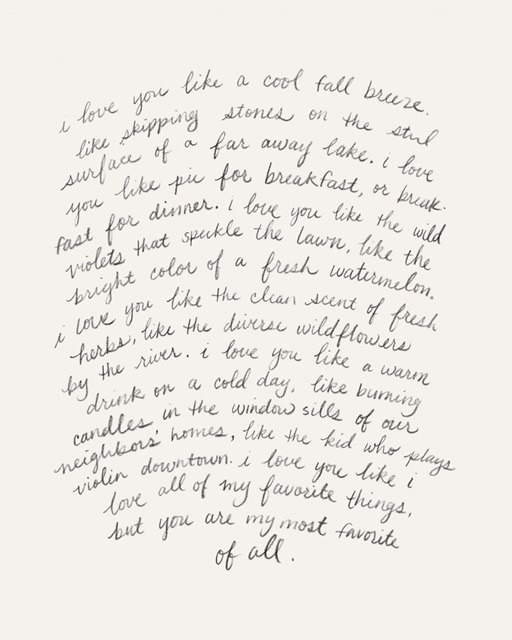 i love you like a cool fall breeze.
like skipping stones on the still
surface of a far away lake. i love
you like pie for breakfast, or break-
fast for dinner. i love you like the wild
violets that speckle the lawn, like the
bright color of a fresh watermelon.
i love you like the clean scent of fresh
herbs, like the diverse wildflowers
by the river. i love you like a warm
drink on a cold day, like burning
candles in the window sills of our
neighbors' homes, like the kid who plays
violin downtown. i love you like i
love all of my favorite things,
but you are my most favorite
of all.